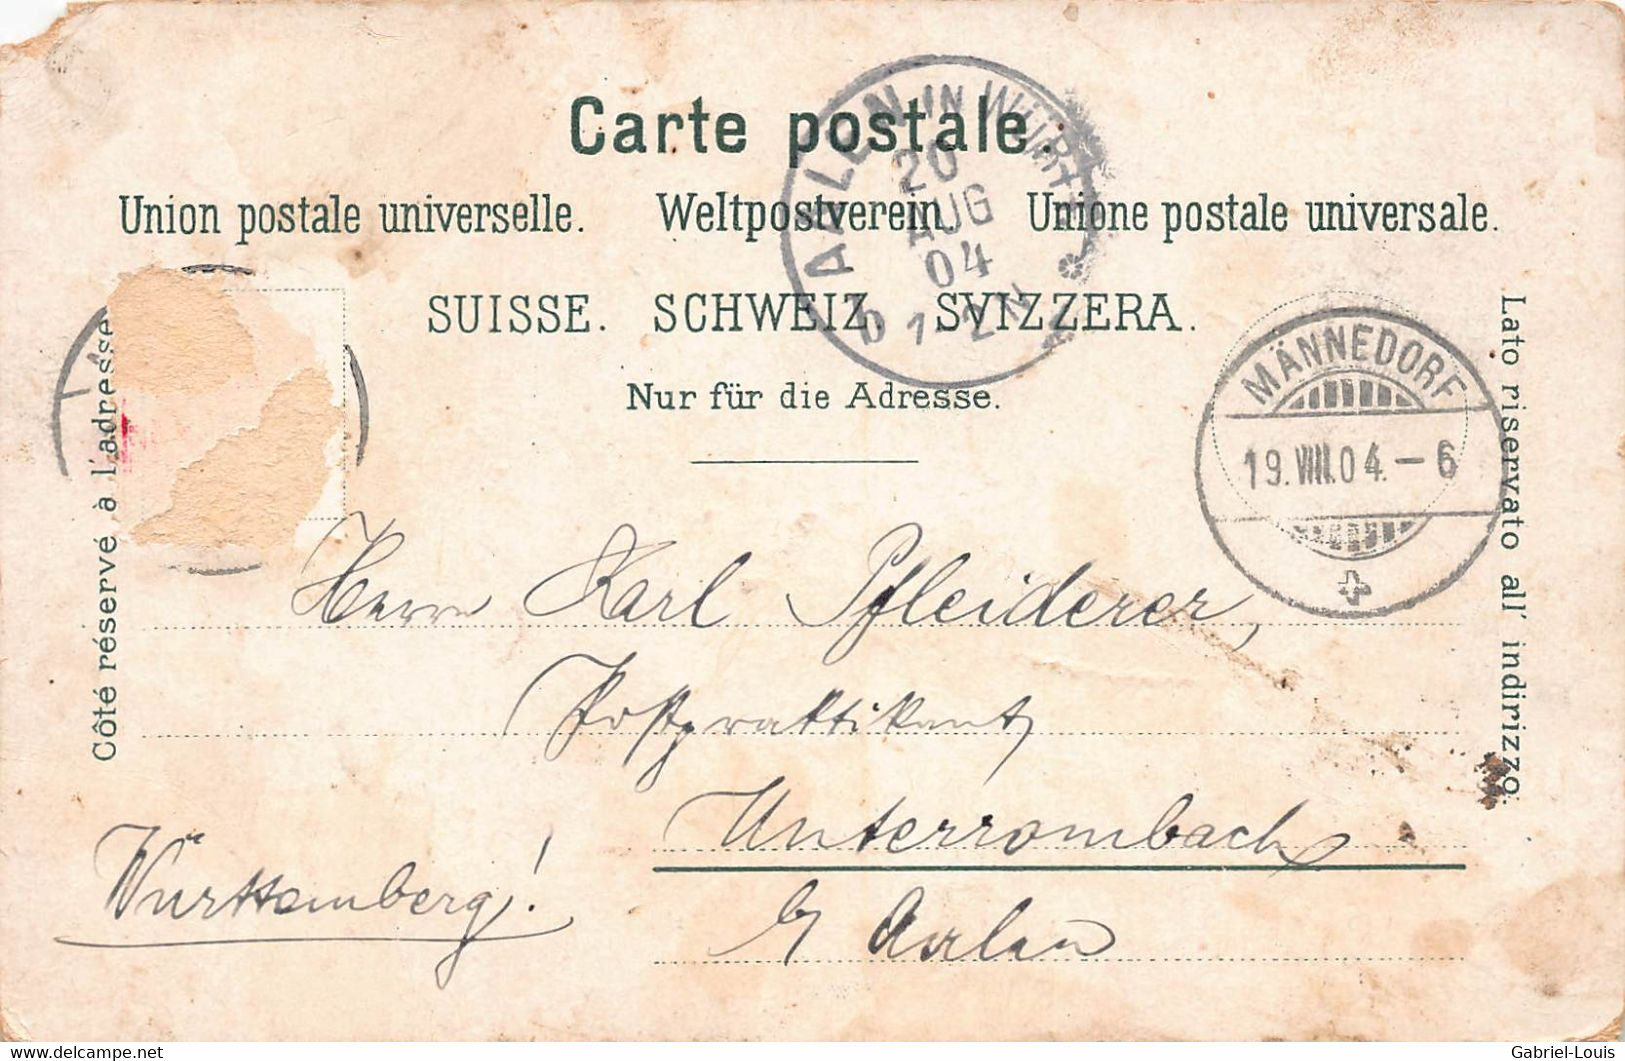 Carte postale.
Union postale universelle. Weltpostverein. Unione postale universale.
SUISSE. SCHWEIZ. SVIZZERA.
Nur für die Adresse.
Côté réservé à l'adresse
Lato riservato all' indirizzo.
AALEN IN WÜRTT
20
AUG
04
1-2N
MÄNNEDORF
19.VIII.04.-6
Herrn Karl Pfleiderer,
Postpraktikant
Unterrombach
b/ Aalen
Württemberg!
https://www.delcampe.net
Gabriel-Louis